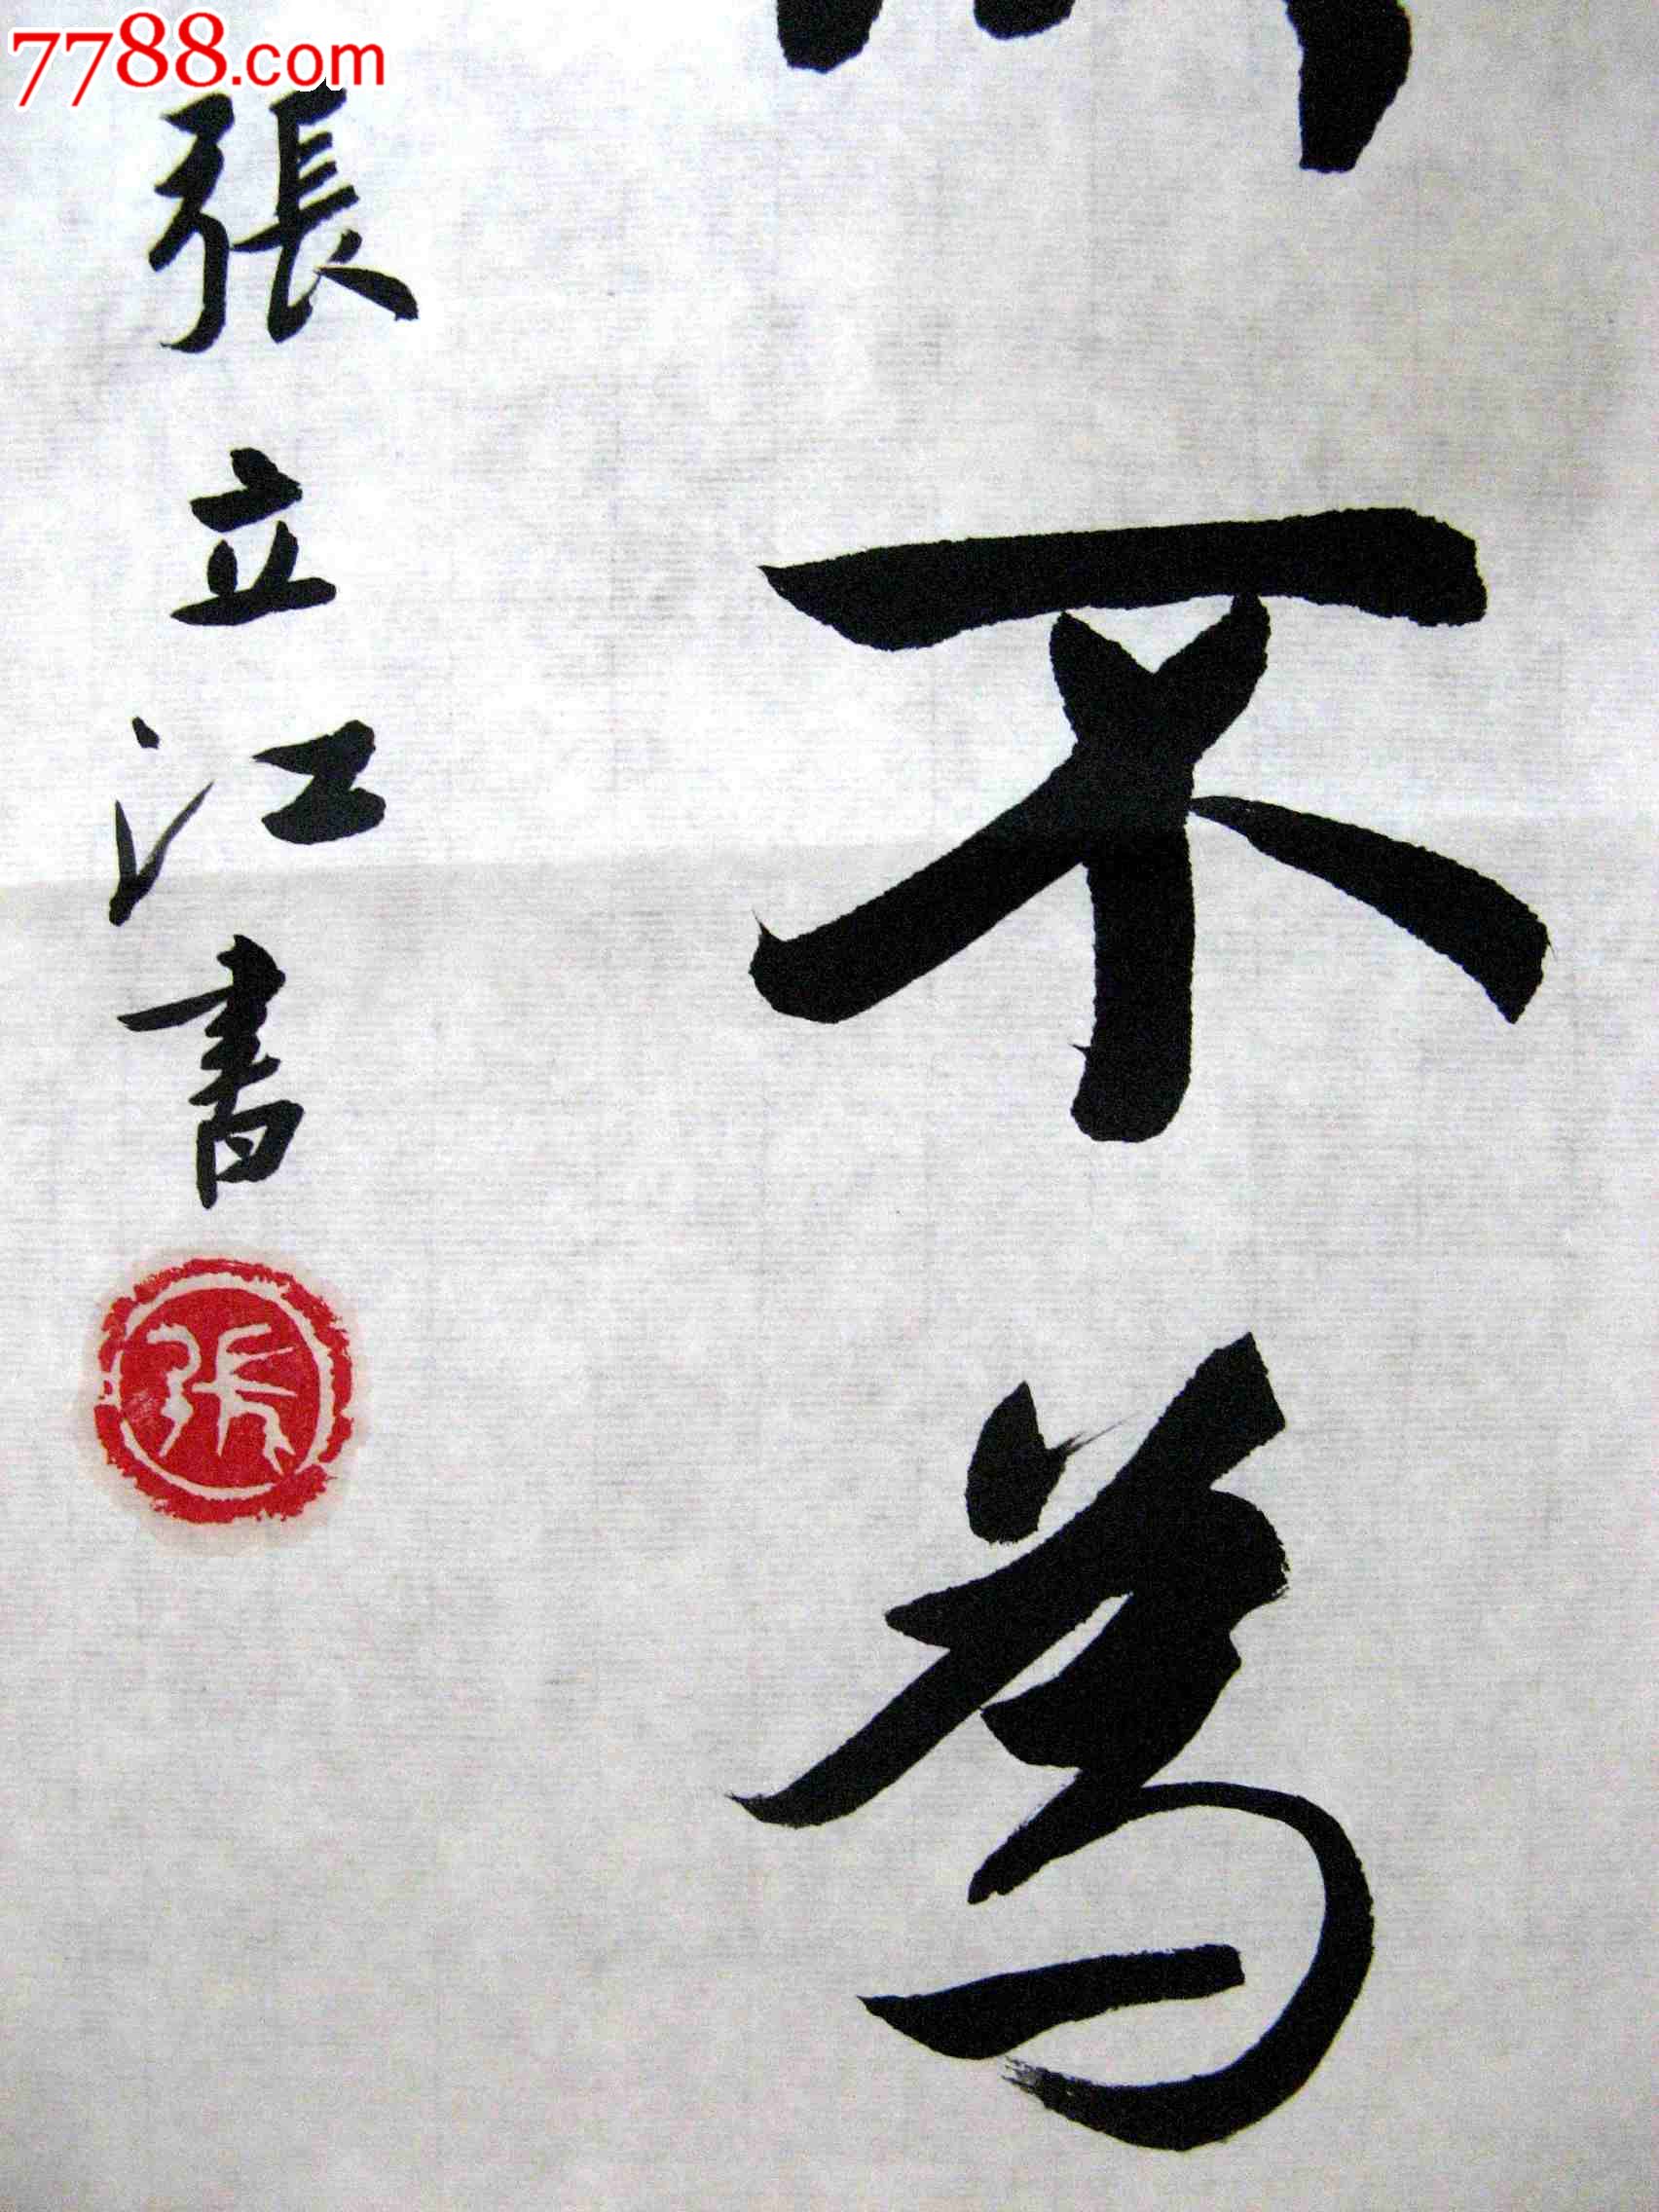 7788.com
不為
張立江書
張